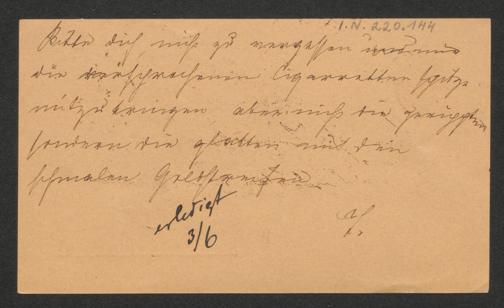 I.N. 220.144
Bitte dich nicht zu vergessen uns
die versprochenen Cigarretten spitze
mitzubringen, aber nicht die gerippten
sondern die glatten mit den
schmalen Goldstreifen
erledigt
3/6